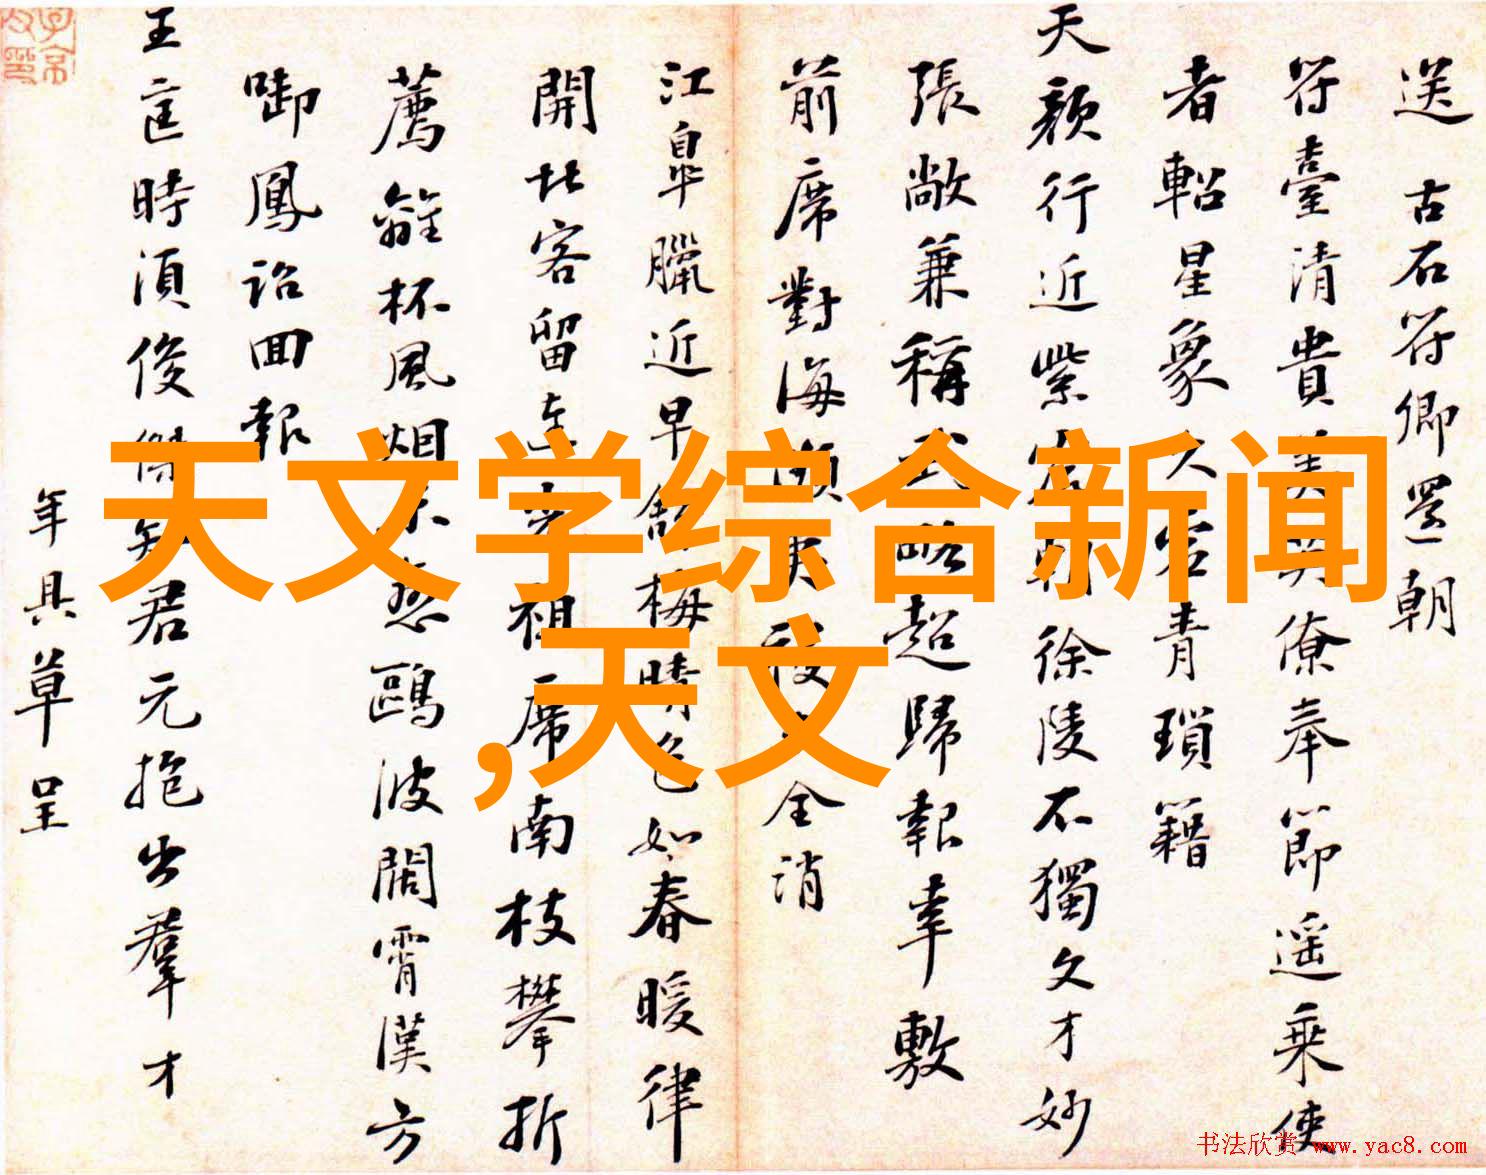 送古石符卿還朝
符臺清貴
僚奉節遥乘使
者軺星象
青瑣籍
天顏行近紫
徐陵不獨文才妙
張敞兼稱武略超歸報幸敷
前席對海
全消
江皐臘近早
梅晴色如春暖律
開北客留連
祖席南枝攀折
薦離杯風烟
愁鷗波闊霄漢方
啣鳳詔回報
王筐時須俊傑
君元抱出羣才
年具草呈
天文学综合新闻
,天文
书法欣赏 www.yac8.com